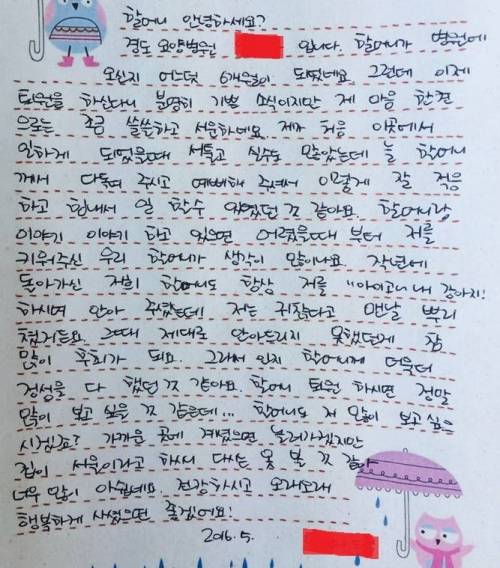 할머니 안녕하세요?
결도 요양병원 입니다. 할머니가 병원에
오신지 어느덧 6개월이 되었네요 그런데 이제
퇴원을 하신다니 분명히 기쁜 소식이지만 제 마음 한켠
으로는 조금 쓸쓸하고 서운하네요. 제가 처음 이곳에서
일하게 되었을때 서툴고 실수도 많았는데 늘 할머니
께서 다독여 주시고 예뻐해 주셔서 이렇게 잘 적응
하고 힘내서 일 할수 있었던 것 같아요. 할머니랑
이야기 이야기 하고 있으면 어렸을때 부터 저를
키워주신 우리 할머니가 생각이 많이나요 작년에
돌아가신 저희 할머니도 항상 저를 "아이고~ 내 강아지!
하시며 안아 주셨는데 저는 귀찮다고 맨날 뿌리
쳤거든요. 그때 제대로 안아드리지 못했던게 참
많이 후회가 되요. 그래서 인지 할머니께 더욱더
정성을 다 했던 것 같아요. 할머니 퇴원 하시면 정말
많이 보고 싶을 것 같은데... 할머니도 저 많이 보고 싶으
시겠죠? 가까운 곳에 계셨으면 놀러가겠지만
집이 서울이라고 하셔서 다시는 못 볼 것 같아
너무 많이 아쉽네요. 건강하시고 오래오래
행복하게 사셨으면 좋겠어요!
2016. 5.